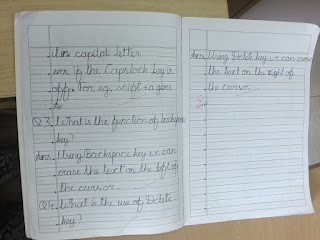 it in capital letter
even if the Capslock key is
off. For eg. shift + a gives
A
Q3. What is the function of backspace
key?
Ans. Using Backspace key we can
erase the text on the left of
the cursor.
Q4. What is the use of Delete
key?
Ans. Using Delete key we can erase
the text on the right of
the cursor.